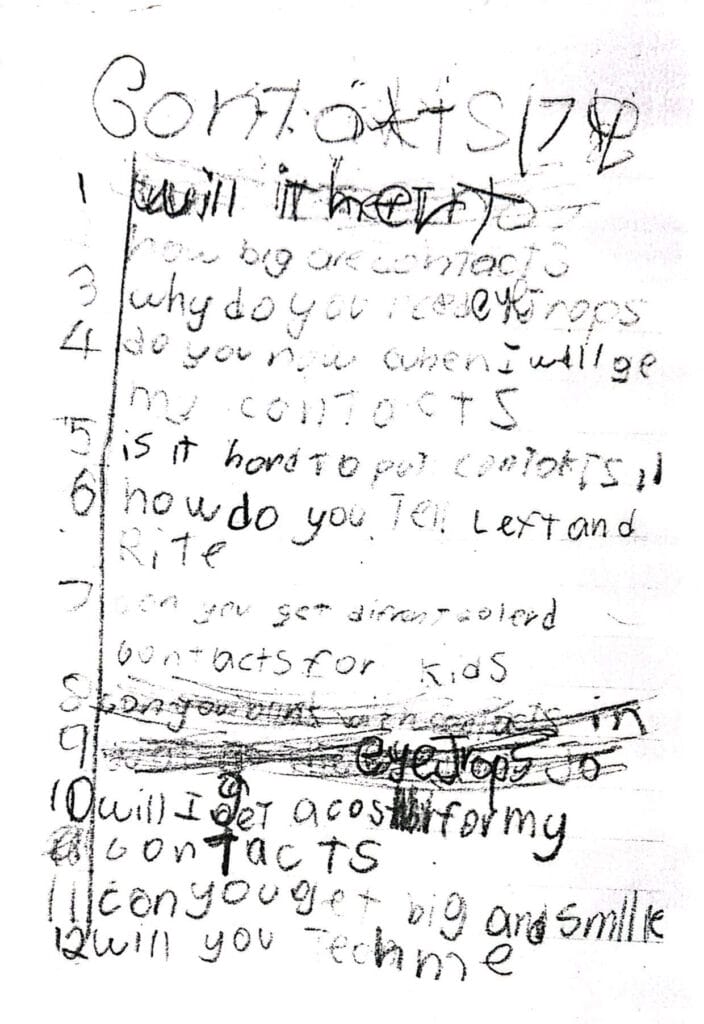 Contakts
1 will it hert to
how big are contacts
3 why do you need eye drops
4 do you now when I will ge
my contacts
5 is it hard to put contakts in
6 how do you Tell Left and
Rite
7 can you get difrent colerd
contacts for kids
8 can you blink with contacts in
9 eyedrops
10 will I get a for my
contacts
11 can you get big and smllle
12 will you Tech me